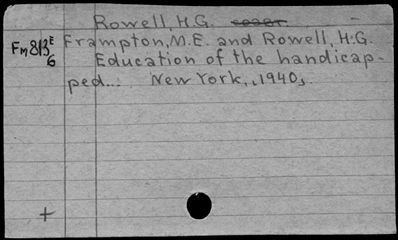 Rowell, H.G.
Fm813E Frampton, M.E. and Rowell, H.G.
6 Education of the handicap-
ped... New York, 1940.